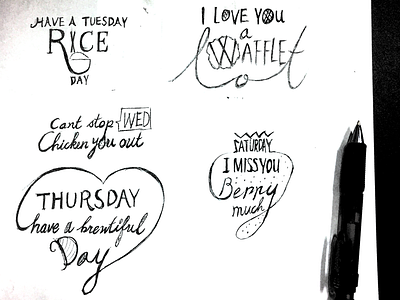 HAVE A TUESDAY
RICE
DAY
I LOVE YOU
a
WAFFLE
Lot
Cant stop WED
Chicken you out
THURSDAY
have a brewtiful
Day
SATURDAY
I MISS YOU
Berry
much